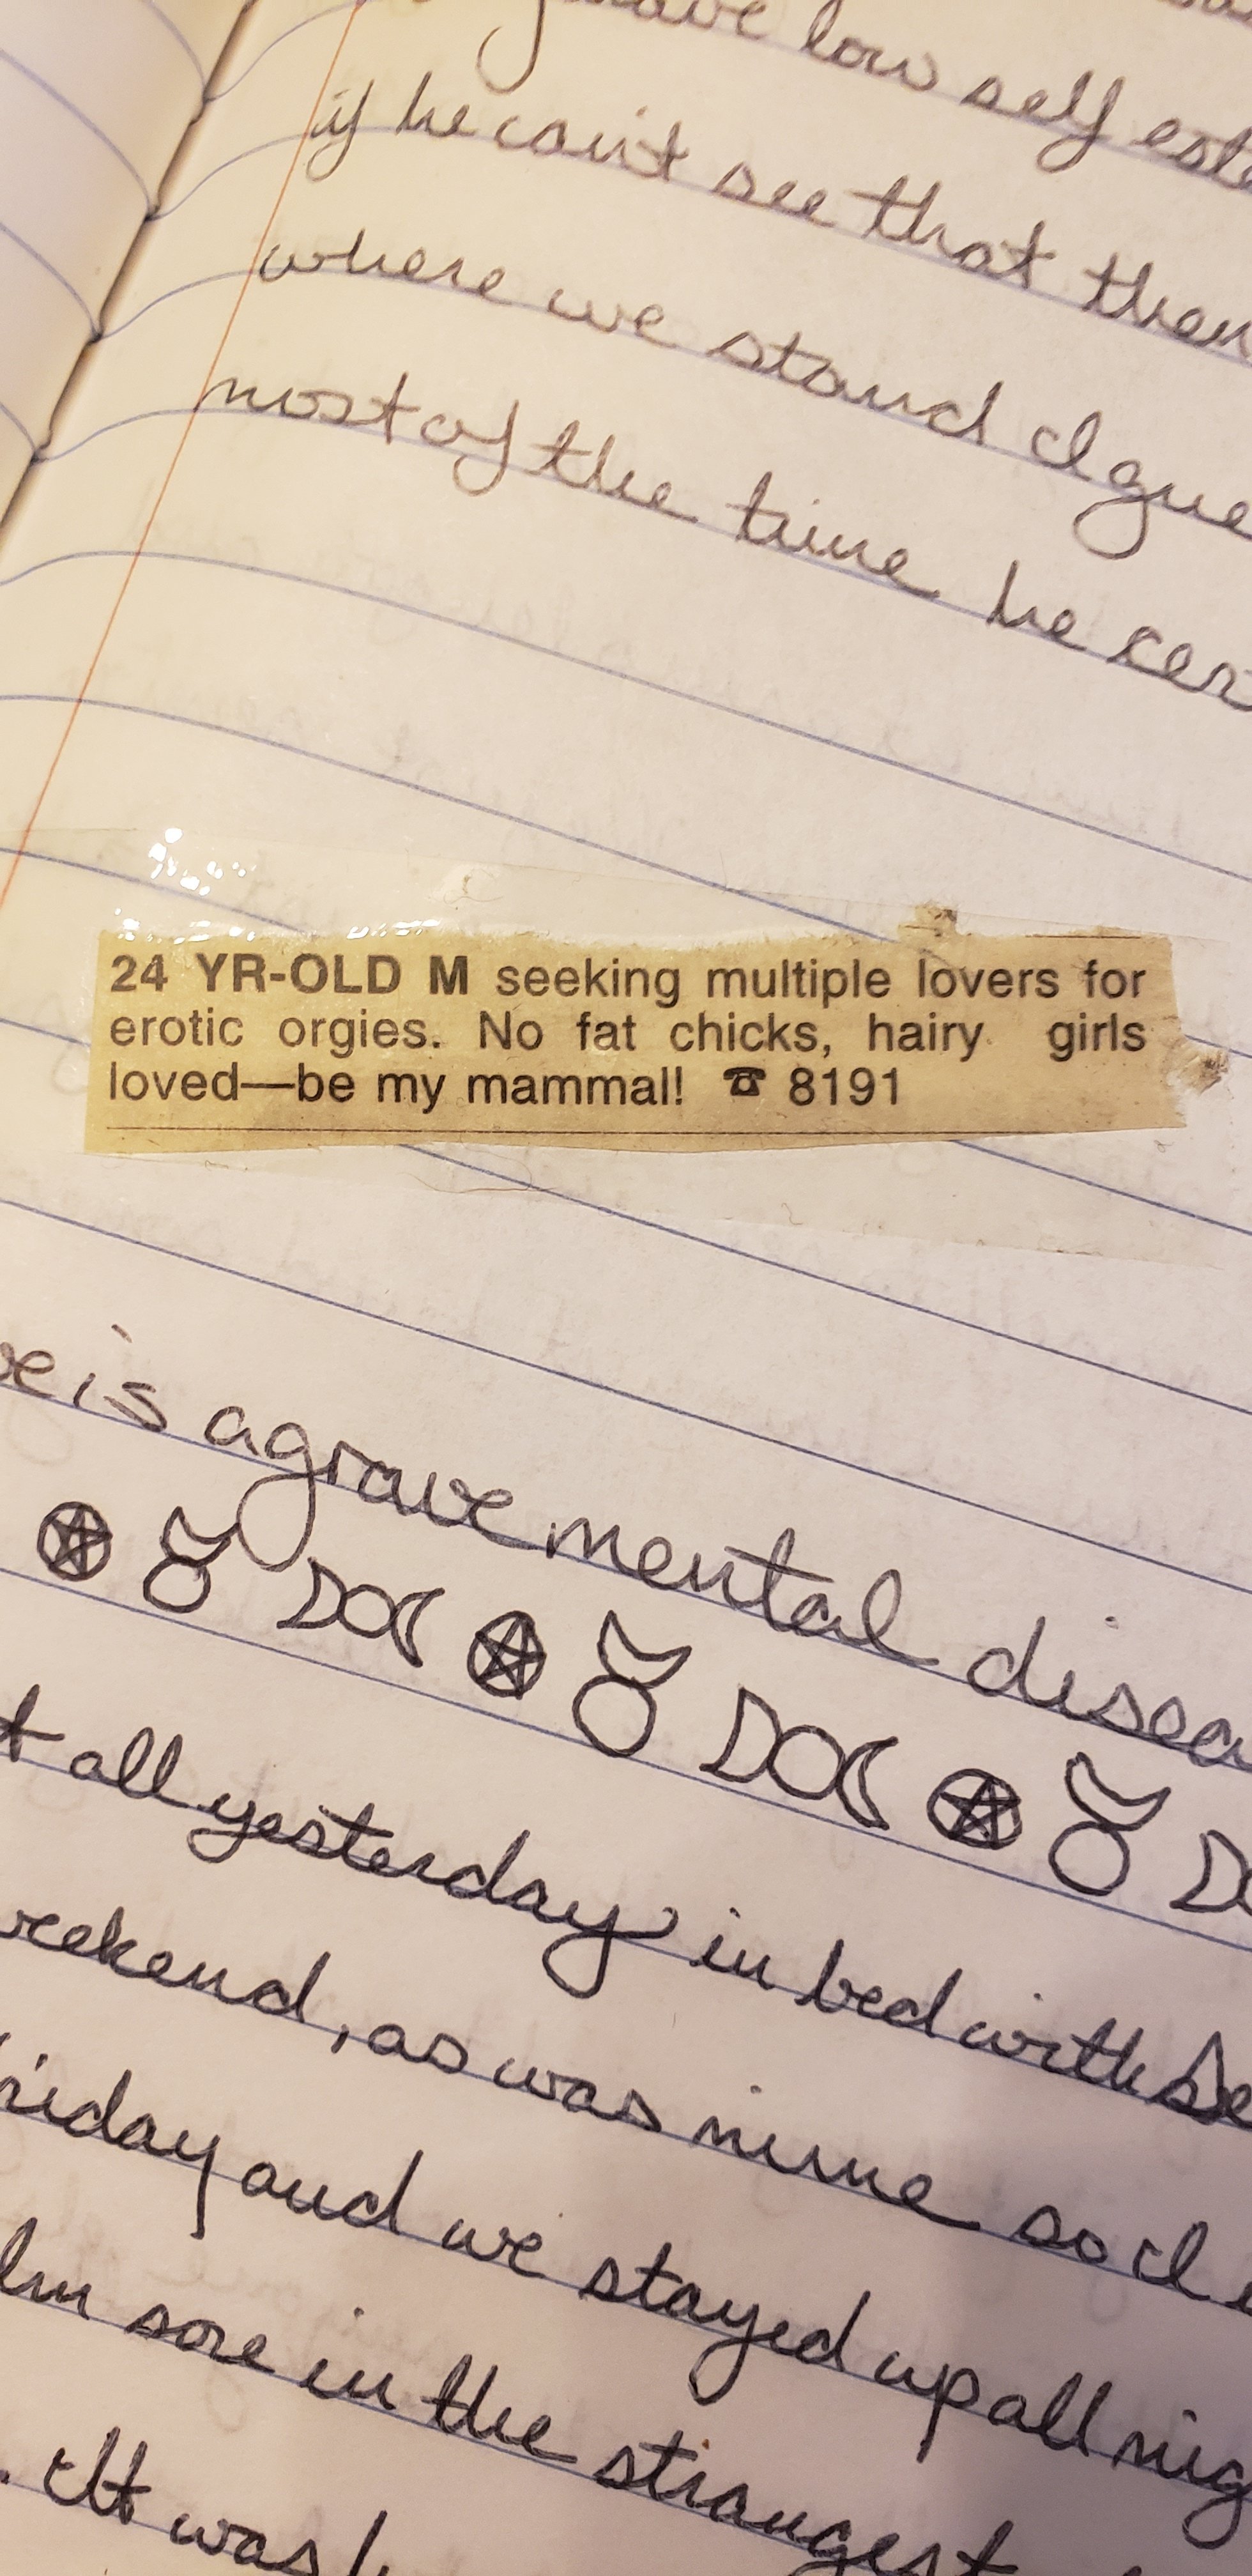 have low self este
if he can't see that then
where we stand I gue
most of the time he cer
24 YR-OLD M seeking multiple lovers for
erotic orgies. No fat chicks, hairy girls
loved—be my mammal! ☎ 8191
e is a grave mental disea
t all yesterday in bed with Se
eekend, as was mine so I
riday and we stayed up all nig
I'm sore in the strangest
. It was